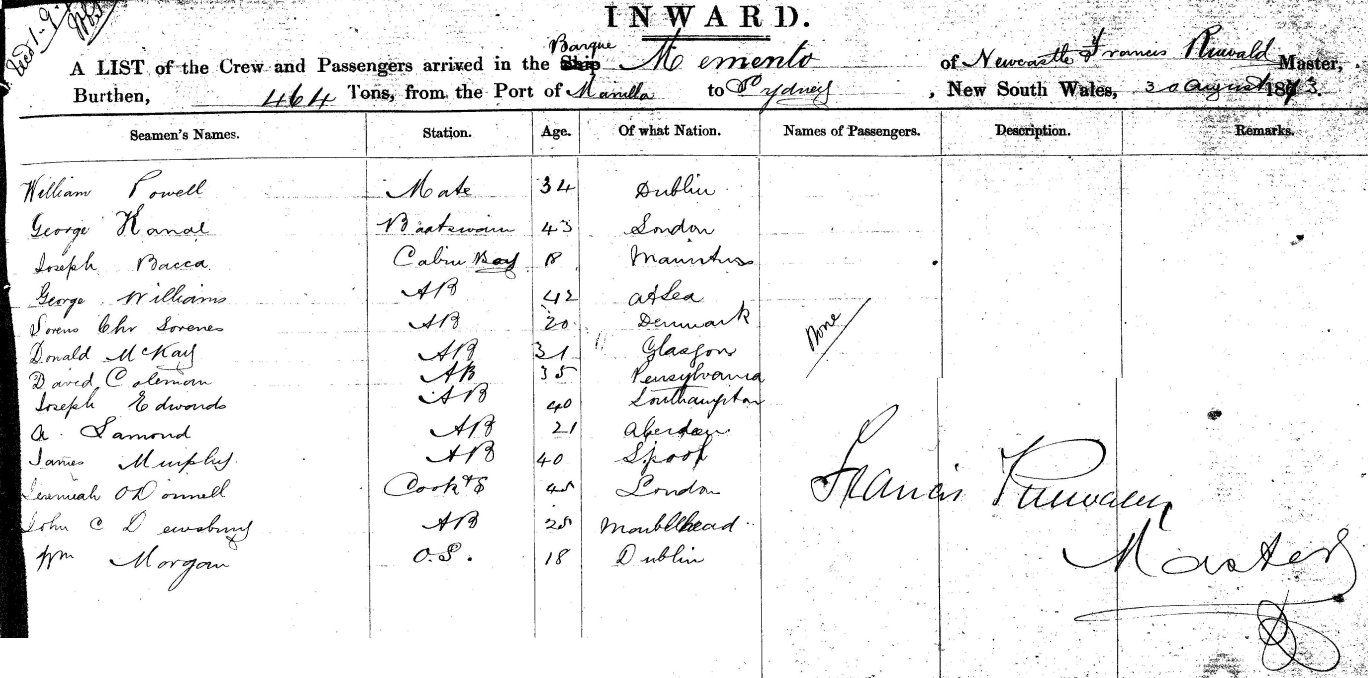 INWARD.
Barque
A LIST of the Crew and Passengers arrived in the Ship Memento of Newcastle Francis Master,
Burthen, 464 Tons, from the Port of Manilla to Sydney, New South Wales, 30 August 1873.
Seamen's Names. Station. Age. Of what Nation. Names of Passengers. Description. Remarks.
William Powell Mate 34 Dublin
George Boatswain 43 London
Joseph Bacca Cabin Boy 18 Mauritius
George Williams AB 42 at Sea
Sorens Chr Sorenes AB 20 Denmark
None
Donald McKay AB 31 Glasgow
David Coleman AB 35 Pensylvania
Joseph Edwards AB 40 Southampton
A. Lamond AB 21 Aberdeen
James Murphy AB 40 L.pool
Jeremiah O Donnell Cook & S 45 London
John C Dewsbury AB 25
Wm Morgan O.S. 18 Dublin
Francis
Master